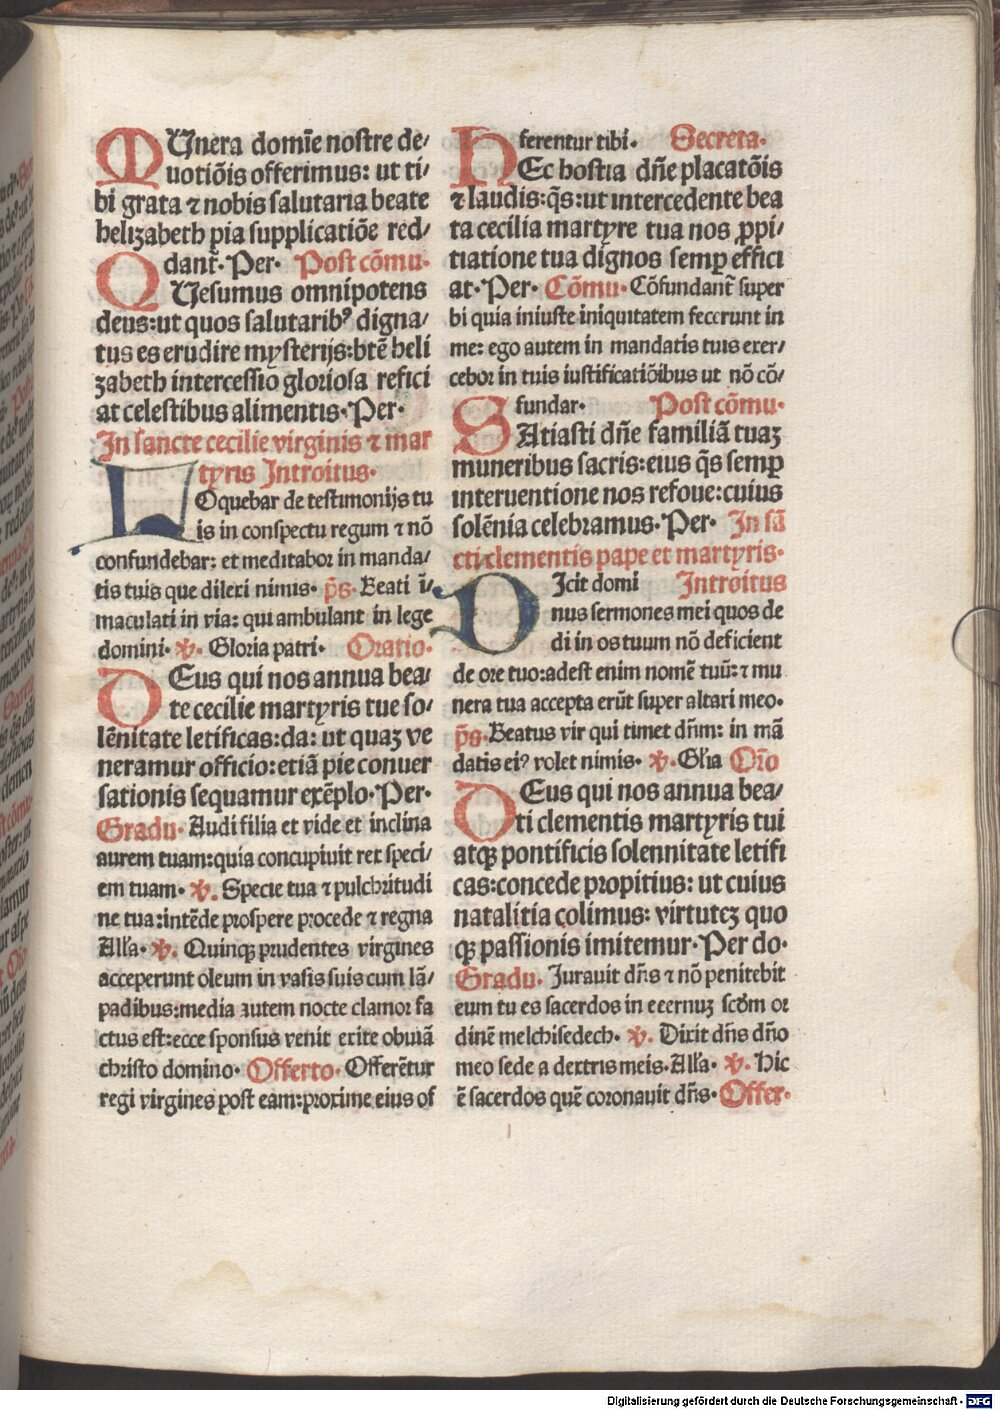 MUnera domīe nostre de/
uotiōis offerimus: ut ti/
bi grata ⁊ nobis salutaria beate
helizabeth pia supplicatiōe red/
dant᷑. Per. Post cōmu.
QUesumus omnipotens
deus: ut quos salutarib⁹ digna/
tus es erudire mysterijs: btē heli
zabeth intercessio gloriosa refici
at celestibus alimentis. Per.
In sancte cecilie virginis ⁊ mar
tyris Introitus.
LOquebar de testimonijs tu
is in conspectu regum ⁊ nō
confundebar: et meditabor in manda/
tis tuis que dilexi nimis. p̄s. Beati ī/
maculati in via: qui ambulant in lege
domini. ℣. Gloria patri. Oratio.
DEus qui nos annua bea/
te cecilie martyris tue so/
lēnitate letificas: da: ut quaꝫ ve
neramur officio: etiā pie conuer
sationis sequamur exēplo. Per.
Gradu. Audi filia et vide et inclina
aurem tuam: quia concupiuit rex speci/
em tuam. ℣. Specie tua ⁊ pulchritudi
ne tua: intēde prospere procede ⁊ regna
All'a. ℣. Quinqꝫ prudentes virgines
acceperunt oleum in vasis suis cum lā/
padibus: media autem nocte clamor fa
ctus est: ecce sponsus venit exite obuiā
christo domino. Offerto. Offerētur
regi virgines post eam: proxime eius of
ferentur tibi. Secreta.
HEc hostia dn̄e placatōis
⁊ laudis: q̄s: ut intercedente bea
ta cecilia martyre tua nos ꝓpi/
tiatione tua dignos semꝑ effici
at. Per. Cōmu. Cōfundant᷑ super
bi quia iniuste iniquitatem fecerunt in
me: ego autem in mandatis tuis exer/
cebor in tuis iustificatiōibus ut nō cō/
fundar. Post cōmu.
SAtiasti dn̄e familiā tuaꝫ
muneribus sacris: eius q̄s semꝑ
interuentione nos refoue: cuius
solēnia celebramus. Per. In sā
cti clementis pape et martyris.
DIcit domi Introitus
nus sermones mei quos de
di in os tuum nō deficient
de ore tuo: adest enim nomē tuū: ⁊ mu
nera tua accepta erūt super altari meo.
p̄s. Beatus vir qui timet dn̄m: in mā
datis ei⁹ volet nimis. ℣. Gl'ia Orō
DEus qui nos annua bea/
ti clementis martyris tui
atqꝫ pontificis solennitate letifi
cas: concede propitius: ut cuius
natalitia colimus: virtuteꝫ quo
qꝫ passionis imitemur. Per do.
Gradu. Jurauit dn̄s ⁊ nō penitebit
eum tu es sacerdos in eternuꝫ scd̄m or
dinē melchisedech. ℣. Dixit dn̄s dn̄o
meo sede a dextris meis. All'a. ℣. Hic
ē sacerdos quē coronauit dn̄s. Offer.
Digitalisierung gefördert durch die Deutsche Forschungsgemeinschaft - DFG